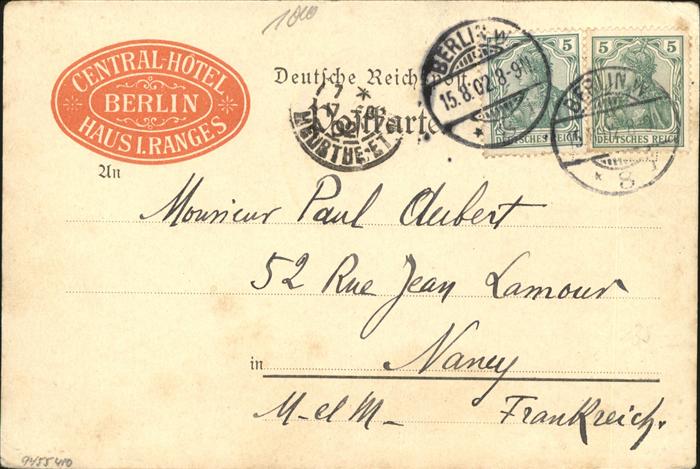 1000
CENTRAL-HOTEL
BERLIN
HAUS I. RANGES
Deutsche Reichs
Postkarte
BERLIN.W.
15.8.02.8-9N.
*
5
DEUTSCHES REICH
5
DEUTSCHES REICH
BERLIN W.
* 8
MEURTHE-ET-
An
Monsieur Paul Aubert
52 Rue Jean Lamour
in Nancy
M-et M- Frankreich.
9455410